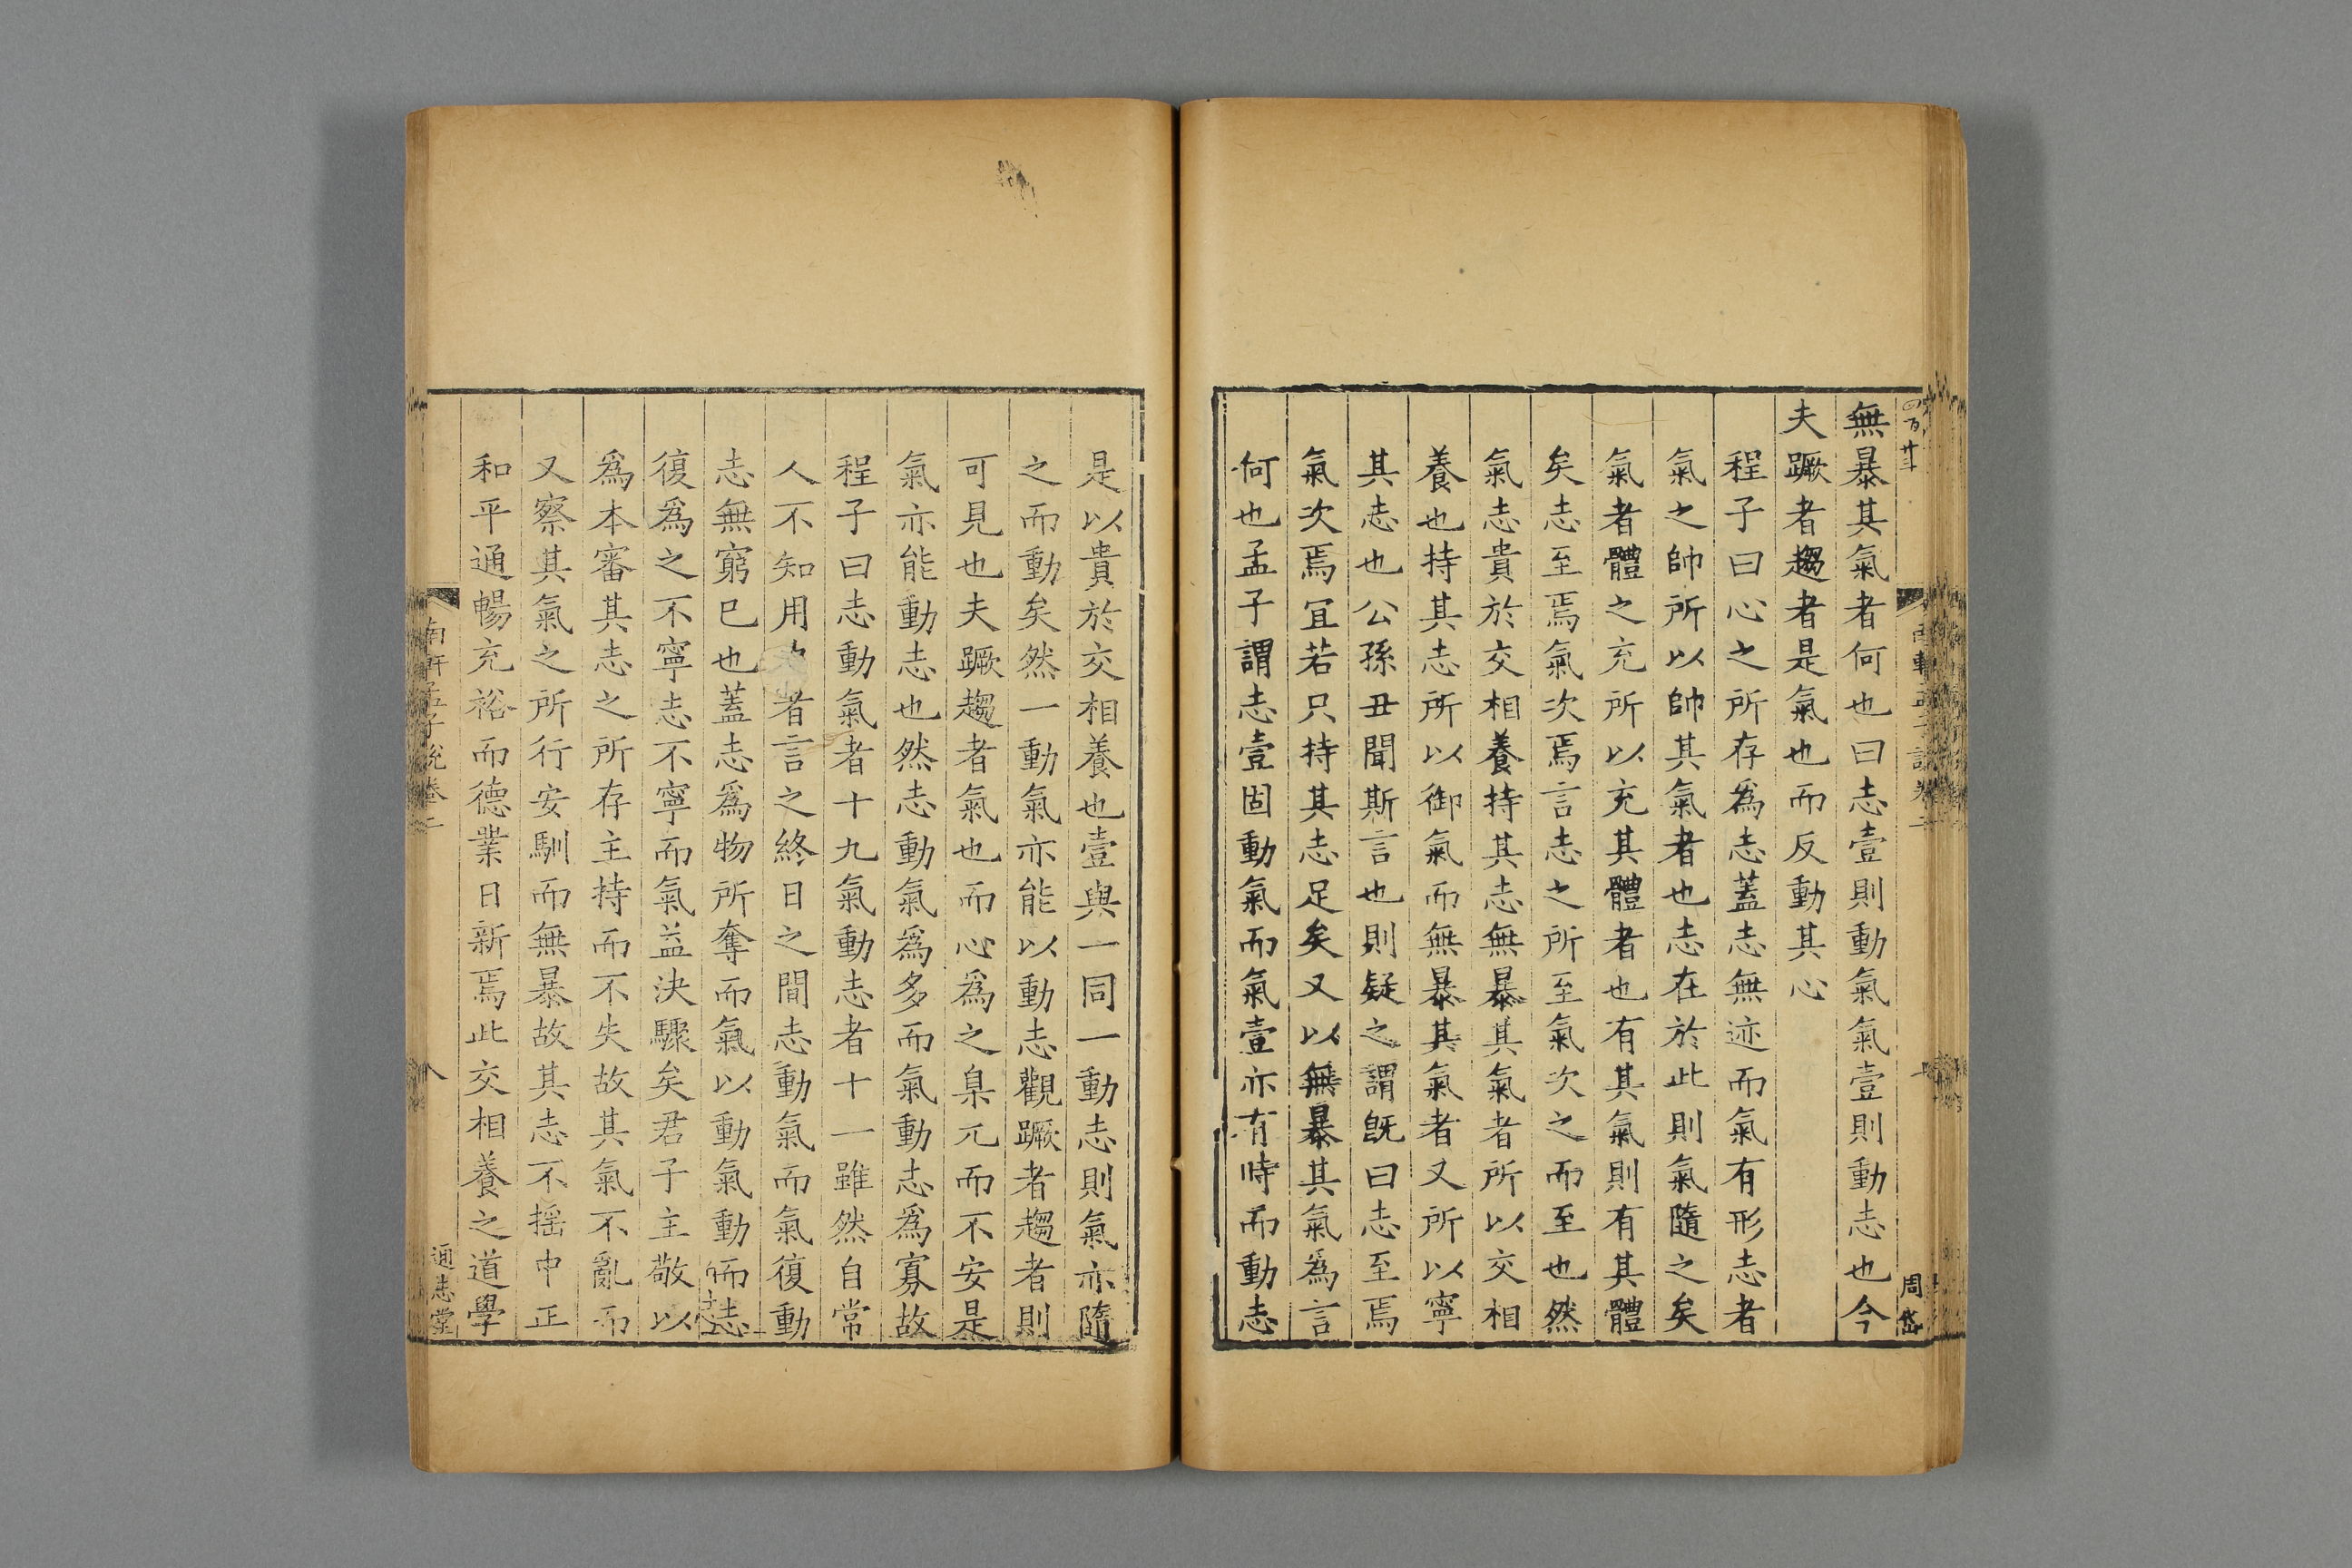 無暴其氣者何也曰志壹則動氣氣壹則動志也今
夫蹶者趨者是氣也而反動其心
程子曰心之所存為志蓋志無迹而氣有形志者
氣之帥所以帥其氣者也志在於此則氣隨之矣
氣者體之充所以充其體者也有其氣則有其體
矣志至焉氣次焉言志之所至氣次之而至也然
氣志貴於交相養持其志無暴其氣者所以交相
養也持其志所以御氣而無暴其氣者又所以寧
其志也公孫丑聞斯言也則疑之謂既曰志至焉
氣次焉宜若只持其志足矣又以無暴其氣為言
何也孟子謂志壹固動氣而氣壹亦有時而動志
周
是以貴於交相養也壹與一同一動志則氣亦隨
之而動矣然一動氣亦能以動志觀蹶者趨者則
可見也夫蹶趨者氣也而心為之臬兀而不安是
氣亦能動志也然志動氣為多而氣動志為寡故
程子曰志動氣者十九氣動志者十一雖然自常
人不知用者言之終日之間志動氣而氣復動
志無窮已也蓋志爲物所奪而氣以動氣動而志
復爲之不寧志不寧而氣益決驟矣君子主敬以
爲本審其志之所存主持而不失故其氣不亂而
又察其氣之所行安馴而無暴故其志不搖中正
和平通暢充裕而德業日新焉此交相養之道學
南軒孟子說卷二
八
通志堂